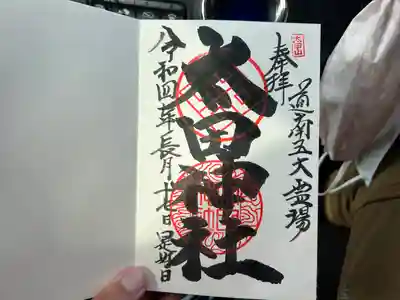 太田山
奉拝
道南五大霊場
太田神社
令和四年長月十七日是好日